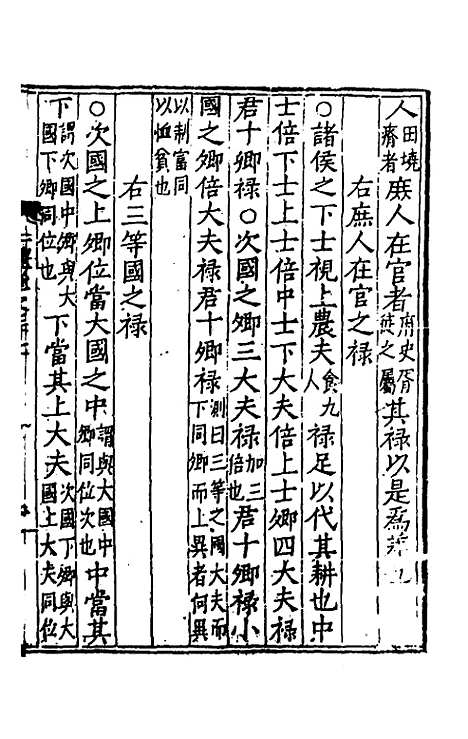 人田墝瘠者庶人在官者府史胥徒之屬其禄以是爲差也
右庶人在官之禄
○諸侯之下士視上農夫食九人禄足以代其耕也中
士倍下士上士倍中士下大夫倍上士卿四大夫禄
君十卿禄○次國之卿三大夫禄加三倍也君十卿禄小
國之卿倍大夫禄君十卿禄測曰三等之國大夫而下同卿而上異者何異
以制富同以恤貧也
右三等國之禄
○次國之上卿位當大國之中謂與大國中卿同位次也中當其
下謂次國中卿與大國下卿同位也下當其上大夫次國下卿與大國上大夫同位